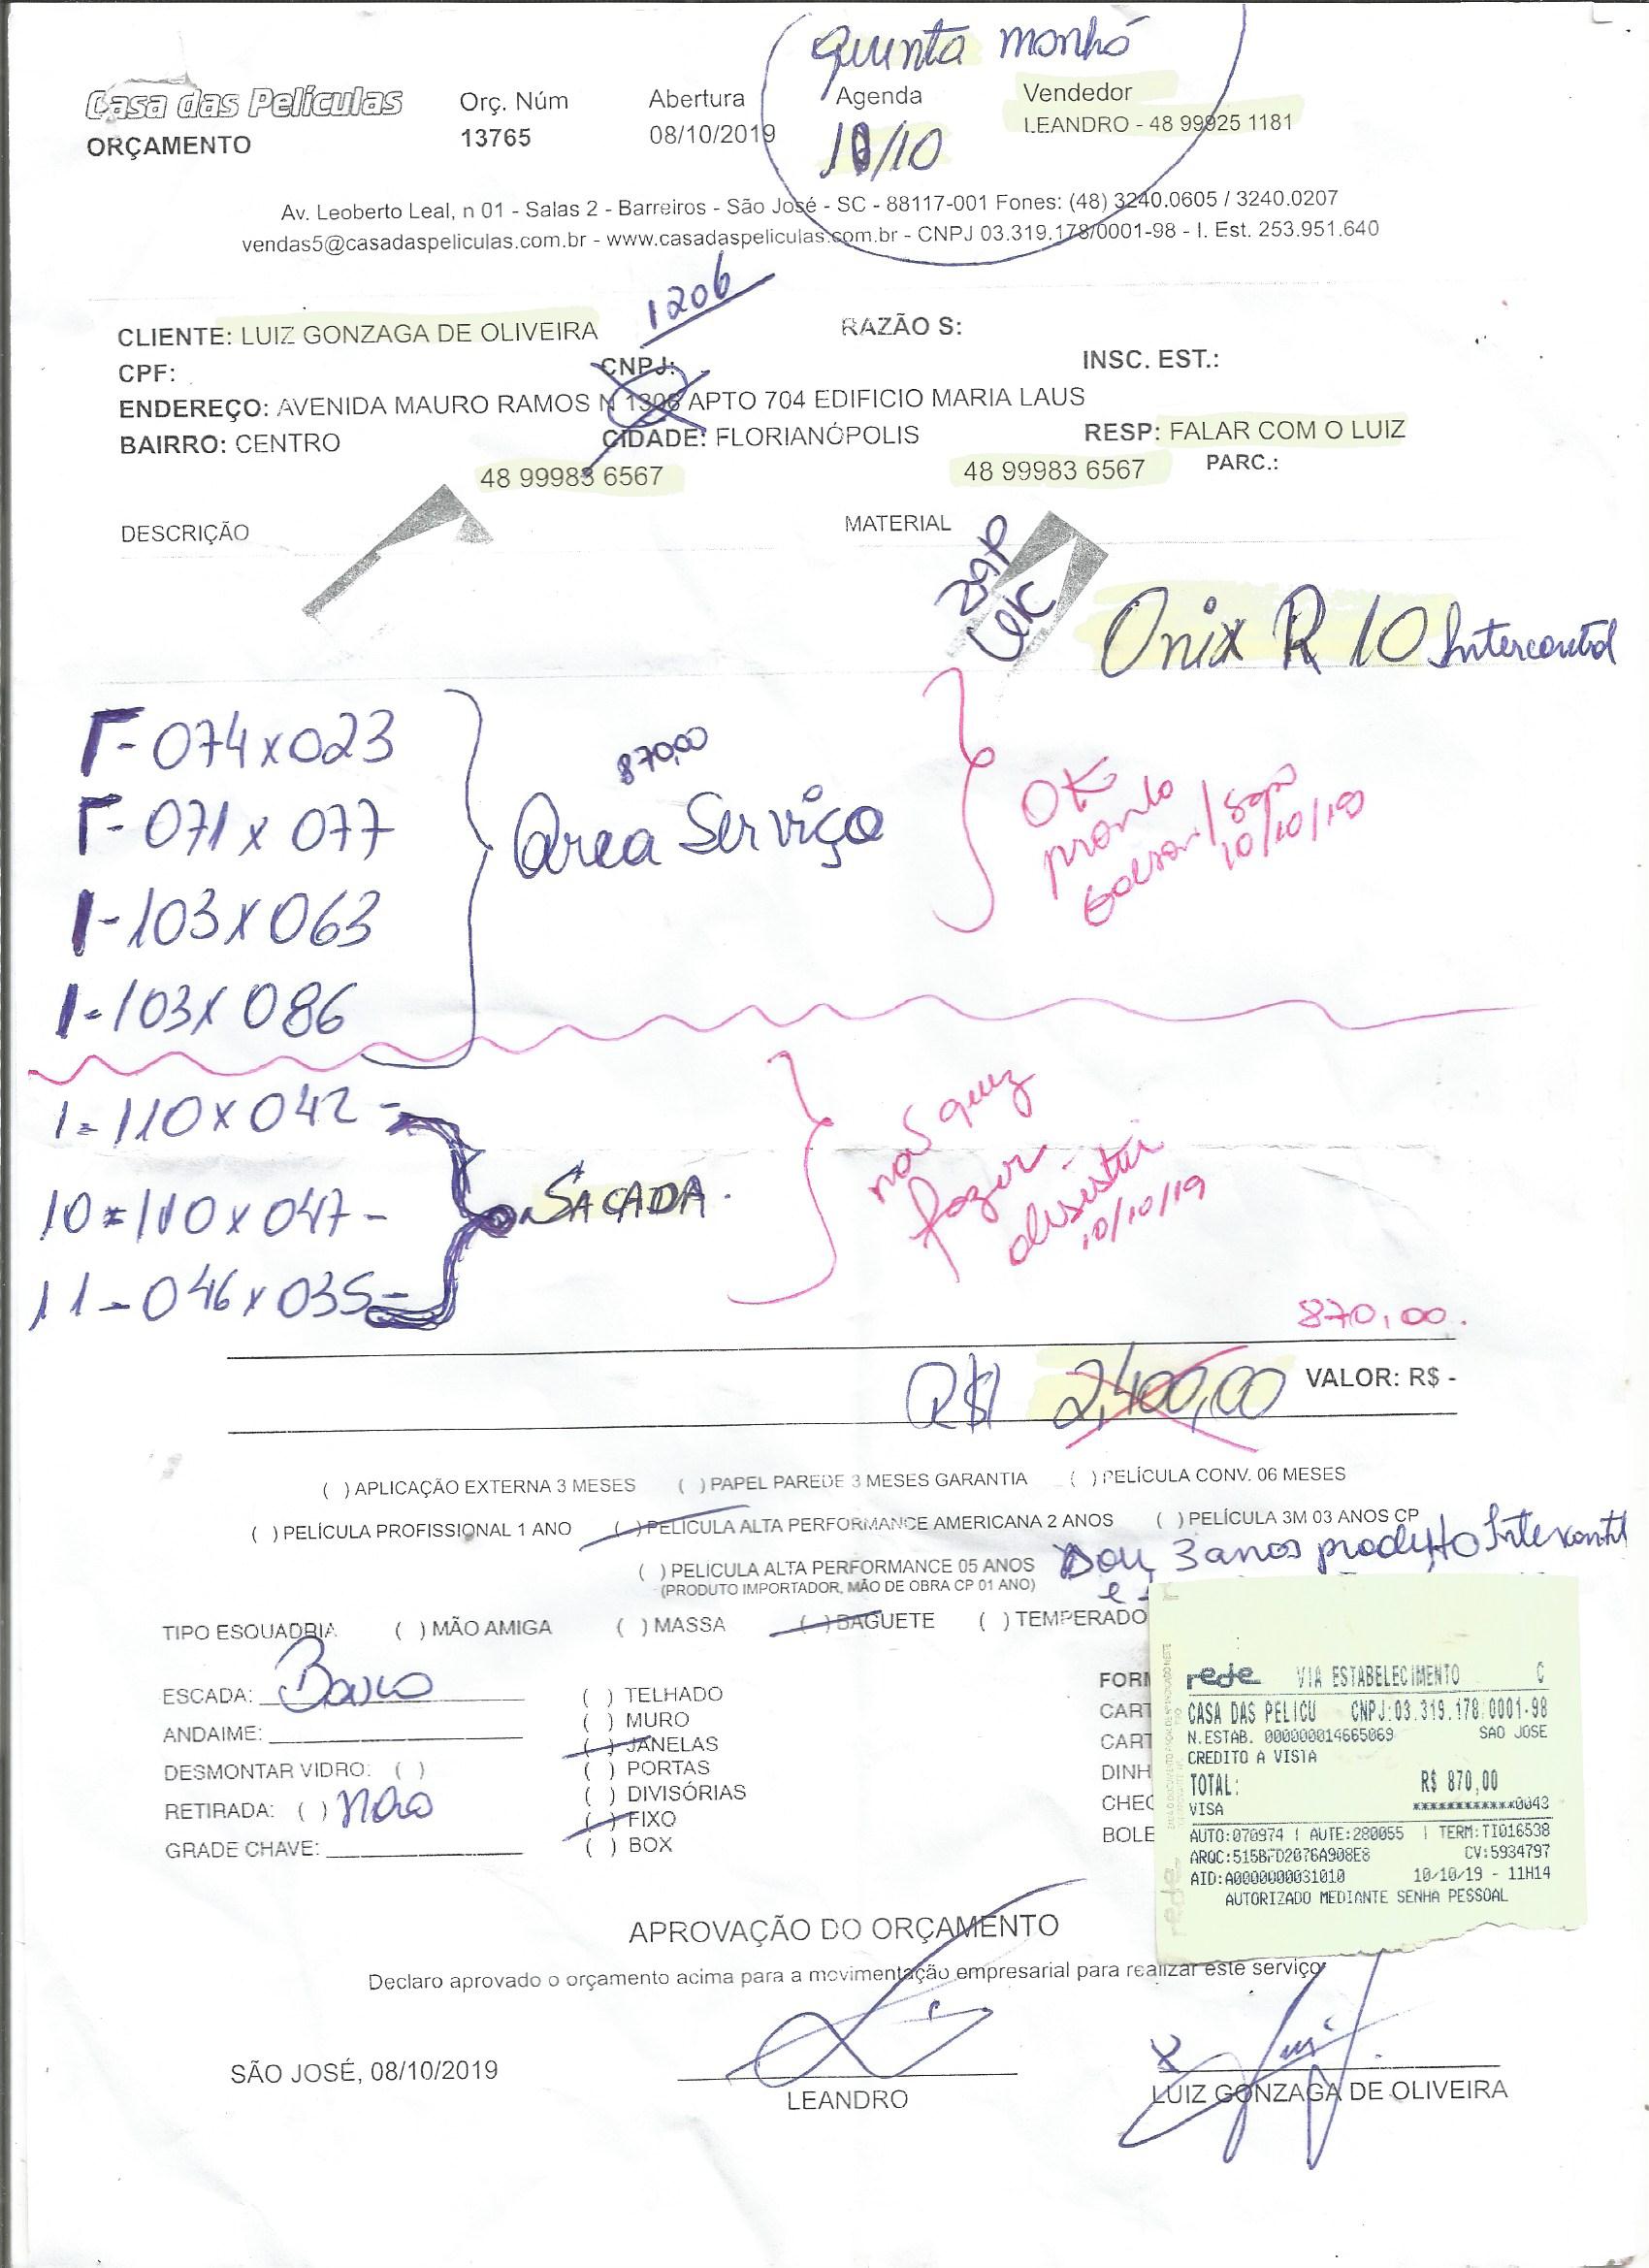 quinta manhã
Casa das Películas
ORÇAMENTO
Orç. Núm
13765
Abertura
08/10/2019
Agenda
10/10
Vendedor
LEANDRO - 48 99925 1181
Av. Leoberto Leal, n 01 - Salas 2 - Barreiros - São José - SC - 88117-001 Fones: (48) 3240.0605 / 3240.0207
vendas5@casadaspeliculas.com.br - www.casadaspeliculas.com.br - CNPJ 03.319.178/0001-98 - I. Est. 253.951.640
1206
CLIENTE: LUIZ GONZAGA DE OLIVEIRA RAZÃO S:
CPF: CNPJ: INSC. EST.:
ENDEREÇO: AVENIDA MAURO RAMOS N 1306 APTO 704 EDIFICIO MARIA LAUS
BAIRRO: CENTRO CIDADE: FLORIANÓPOLIS RESP: FALAR COM O LUIZ
48 99983 6567 48 99983 6567 PARC.:
DESCRIÇÃO MATERIAL
Onix R 10 Intercontrol
1- 074 x 023
1- 071 x 077
1- 103 x 063
1- 103 x 086
870,00
Area Serviço
OK
pronto
10/10/19
1- 110 x 042 -
10 = 110 x 047 -
11 - 046 x 035 -
SACADA.
não quiz
fazer
desistiu
10/10/19
870,00.
R$ 2,400,00 VALOR: R$ -
( ) APLICAÇÃO EXTERNA 3 MESES ( ) PAPEL PAREDE 3 MESES GARANTIA ( ) PELÍCULA CONV. 06 MESES
( ) PELÍCULA PROFISSIONAL 1 ANO ( ) PELICULA ALTA PERFORMANCE AMERICANA 2 ANOS ( ) PELÍCULA 3M 03 ANOS CP
( ) PELICULA ALTA PERFORMANCE 05 ANOS
Dou 3 anos produto Intercontrol
e
(PRODUTO IMPORTADOR, MÃO DE OBRA CP 01 ANO)
TIPO ESQUADRIA ( ) MÃO AMIGA ( ) MASSA ( ) BAGUETE ( ) TEMPERADO
ESCADA: Banco
ANDAIME:
DESMONTAR VIDRO: ( )
RETIRADA: ( ) não
GRADE CHAVE:
( ) TELHADO
( ) MURO
( ) JANELAS
( ) PORTAS
( ) DIVISÓRIAS
( ) FIXO
( ) BOX
FORM
CART
CART
DINH
CHEC
BOLE
rede VIA ESTABELECIMENTO C
CASA DAS PELICU CNPJ:03.319.178.0001-98
N.ESTAB. 000000014665069 SAO JOSE
CREDITO A VISTA
TOTAL: R$ 870,00
VISA ************0043
AUTO:070974 | AUTE:280055 | TERM:TI016538
ARQC:515BFD2076A908E8 CV:5934797
AID:A0000000031010 10/10/19 - 11H14
AUTORIZADO MEDIANTE SENHA PESSOAL
APROVAÇÃO DO ORÇAMENTO
Declaro aprovado o orçamento acima para a movimentação empresarial para realizar este serviço
SÃO JOSÉ, 08/10/2019
LEANDRO
LUIZ GONZAGA DE OLIVEIRA